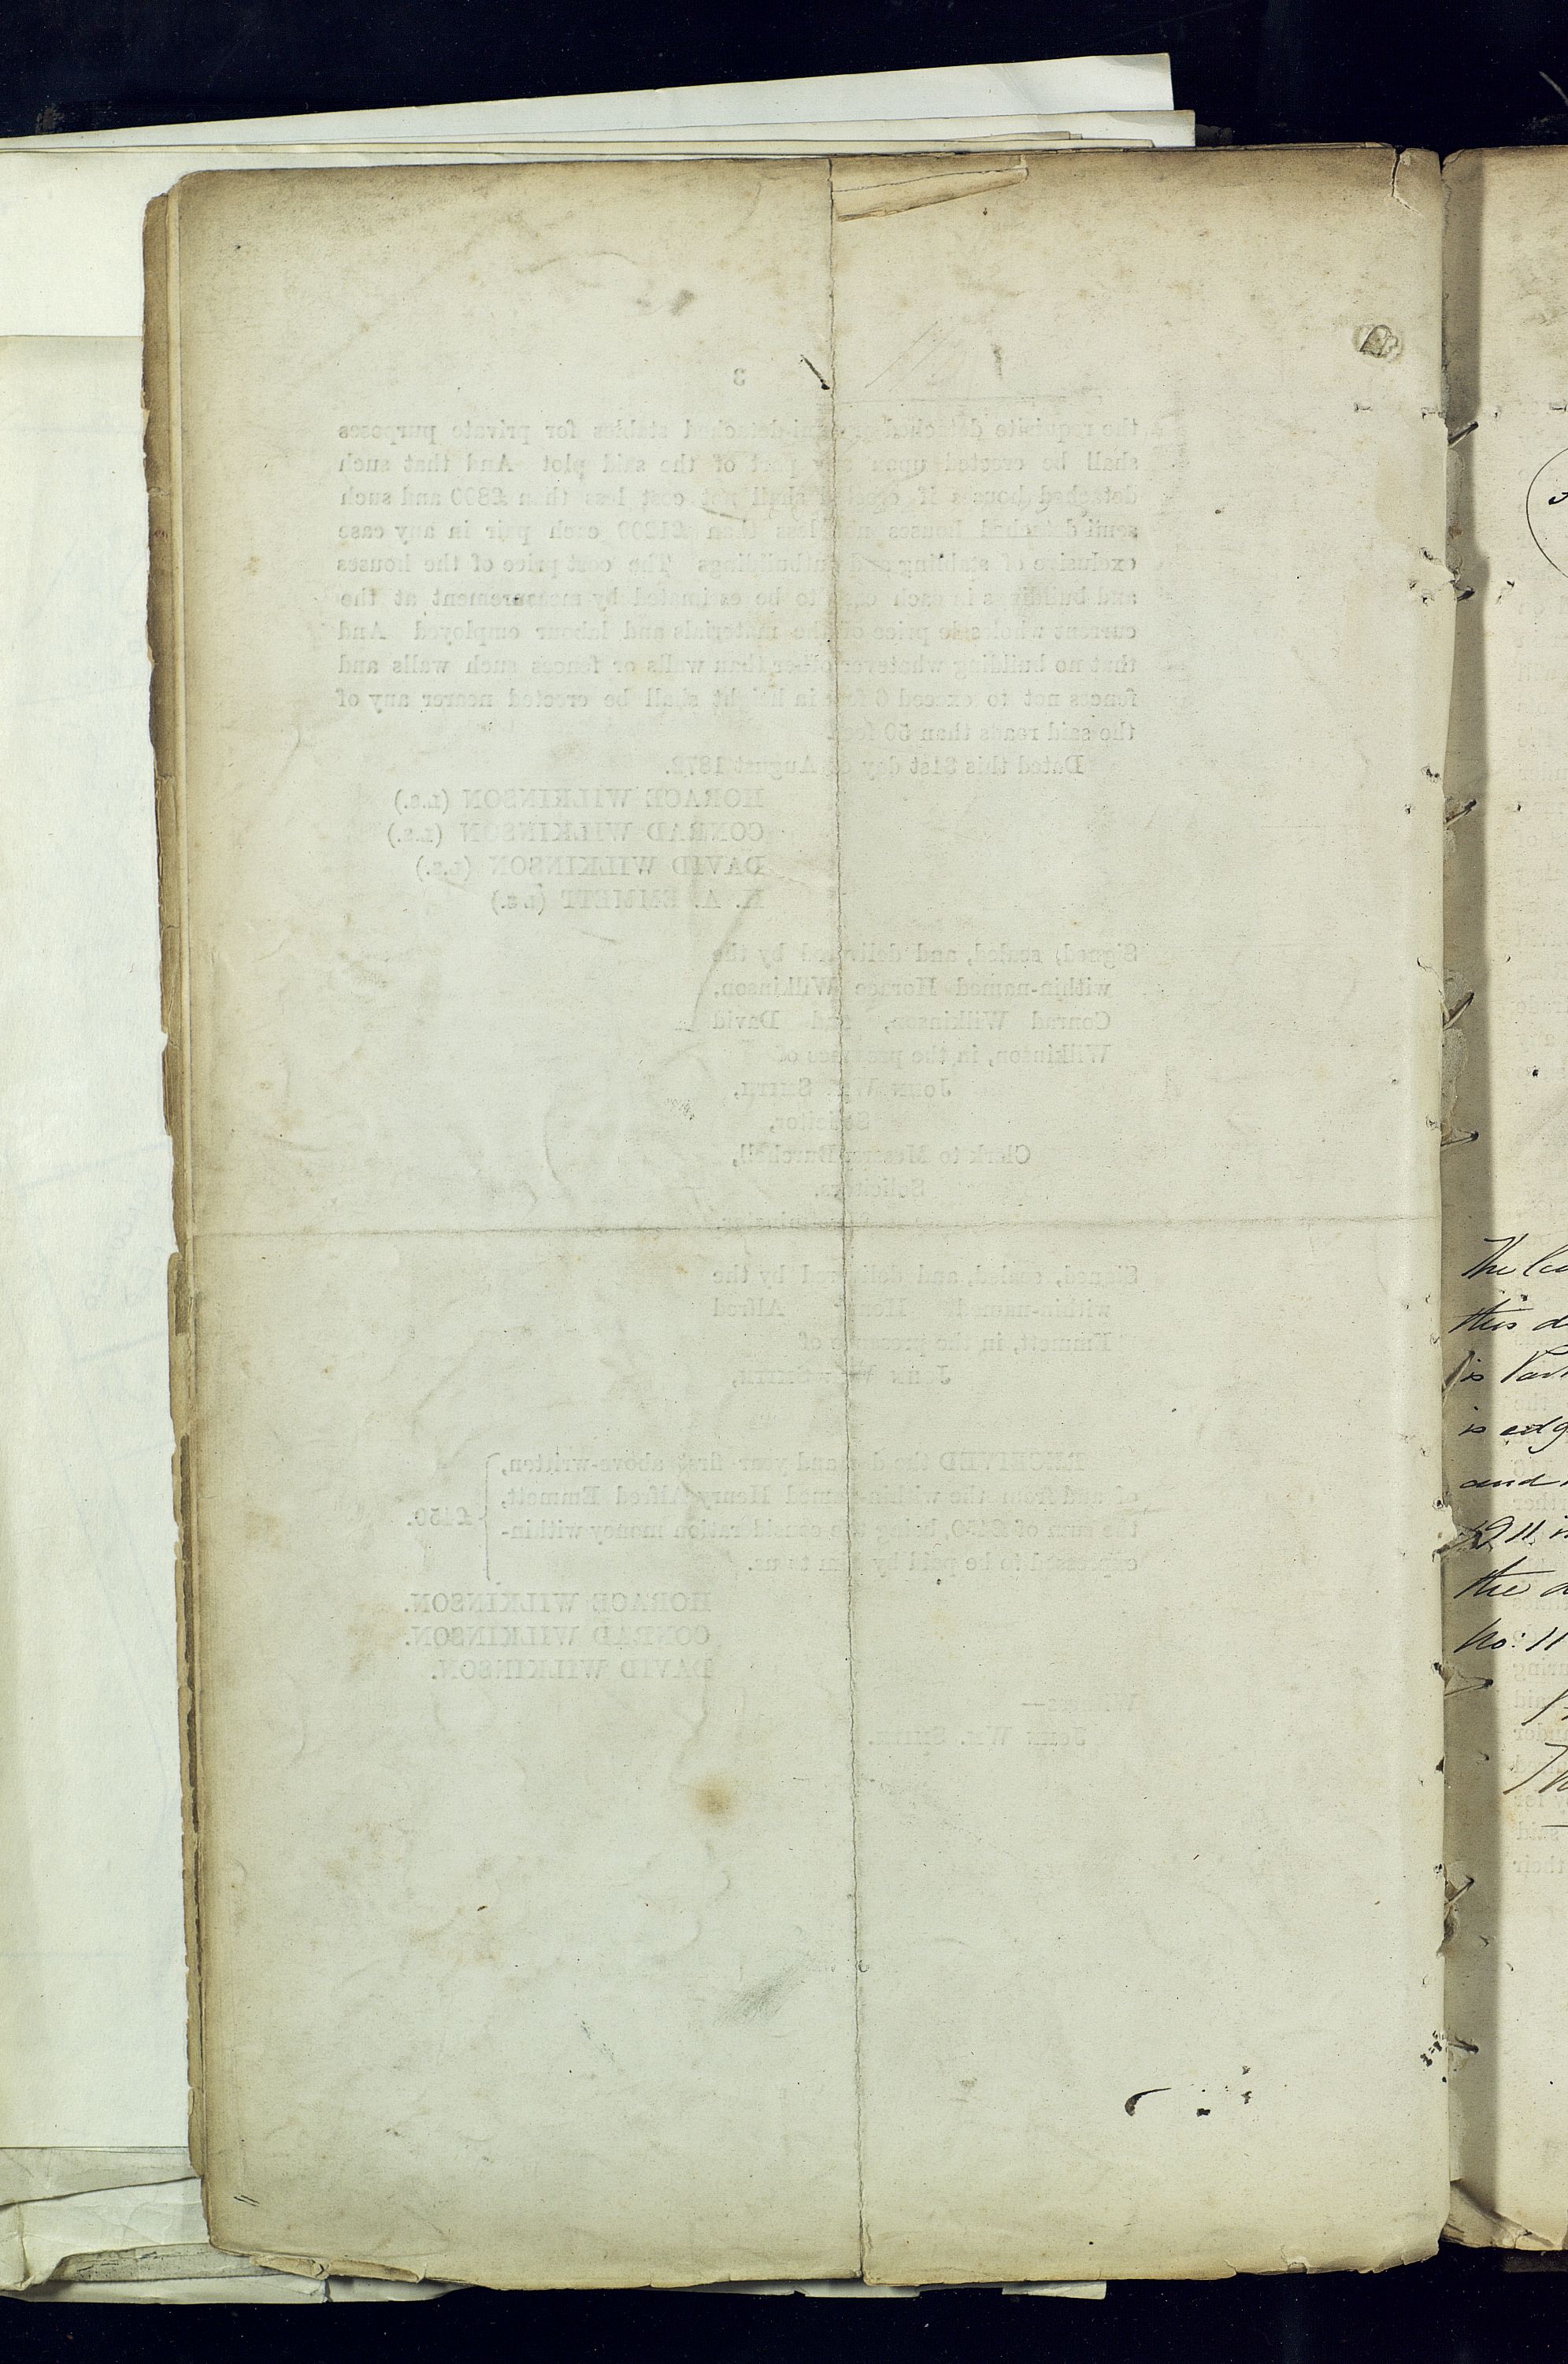 3
the requisite detached semi-detached stables for private purposes
shall be erected upon any part of the said plot And that such
detached houses if erected shall not cost less than £800 and such
semi-detached houses not less than £1200 each pair in any case
exclusive of stabling and outbuildings The cost price of the houses
and buildings in each case to be estimated by measurement at the
current wholesale price of the materials and labour employed And
that no building whatever other than walls or fences such walls and
fences not to exceed 6 feet in height shall be erected nearer any of
the said roads than 50 feet
Dated this 31st day of August 1872.
HORACE WILKINSON (L.S.)
CONRAD WILKINSON (L.S.)
DAVID WILKINSON (L.S.)
H. A. EMMETT (L.S.)
Signed, sealed, and delivered by the
within-named Horace Wilkinson,
Conrad Wilkinson, and David
Wilkinson, in the presence of
JOHN WM. SMITH,
Solicitor,
Clerk to Messrs. Burchell,
Solicitors,
Signed, sealed, and delivered by the
within-named Henry Alfred
Emmett, in the presence of
JOHN WM. SMITH,
RECEIVED the day and year first above-written,
of and from the within-named Henry Alfred Emmett,
the sum of £450, being the consideration money within- £450.
expressed to be paid by him to us.
HORACE WILKINSON.
CONRAD WILKINSON.
DAVID WILKINSON.
Witness—
JOHN WM. SMITH.
The
this
is
is edg
and
the
No: 11